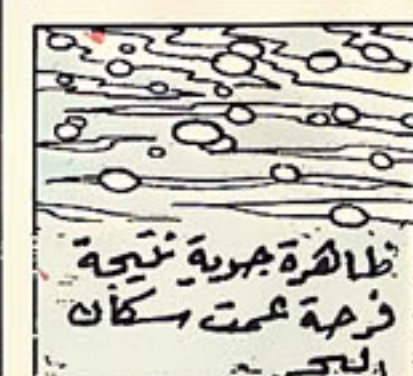 ظاهرة جوية نتيجة
فرحة عمت سكان
البحر